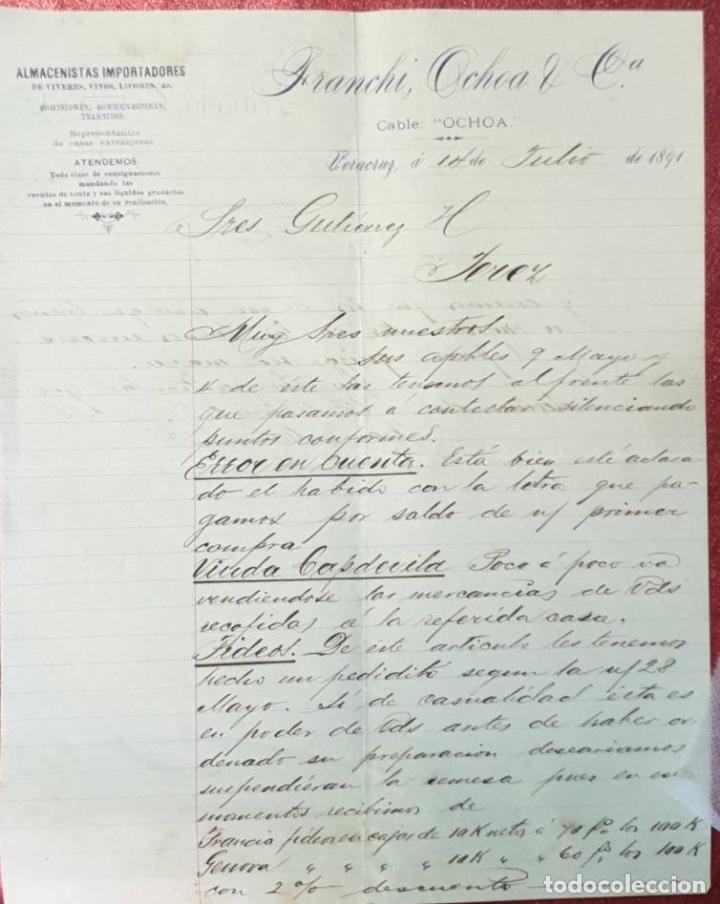 ALMACENISTAS IMPORTADORES
DE VIVERES, VINOS, LICORES, &c.
COMISIONES, CONSIGNACIONES,
TRANSITOS.
Representantes
de casas extranjeras
ATENDEMOS
Toda clase de consignaciones
mandando las
cuentas de venta y sus líquidos productos
en el momento de su realización.
Franchi, Ochoa & Ca.
Cable: "OCHOA."
Veracruz, á 14 de Julio de 1891.
Sres Gutiérrez H
Jerez
Muy Sres nuestros
sus apbles 9 Mayo y
4 de éste las tenemos al frente las
que pasamos á contestar silenciando
puntos conformes.
Error en Cuenta. Está bien esté aclara
do el habido con la letra que pa-
gamos por saldo de n/ primer
compra
Viuda Capdevila Poco á poco va
vendiendose las mercancias de Vds
recojidas á la referida casa.
Fideos. De este articulo les tenemos
hecho un pedidito segun la n/ 28
Mayo. Si de casualidad ésta es
en poder de Vds antes de haber or
denado su preparacion deseariamos
suspendieran la remesa pues en estos
momentos recibimos de
Francia fideos en cajas de 10 K netos á 70 fs. los 100 K
Genova " " " " 10 K " " 60 fs. los 100 K
con 2 % descuento
todocoleccion